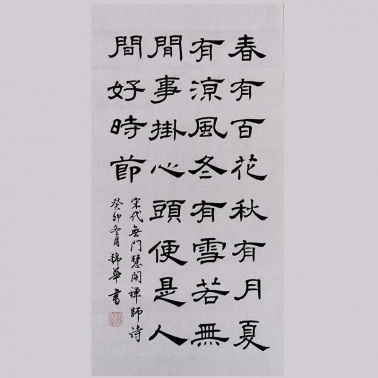 春有百花秋有月夏
有涼風冬有雪若無
閒事掛心頭便是人
間好時節
宋代無門慧開禪師詩
癸卯冬月華書